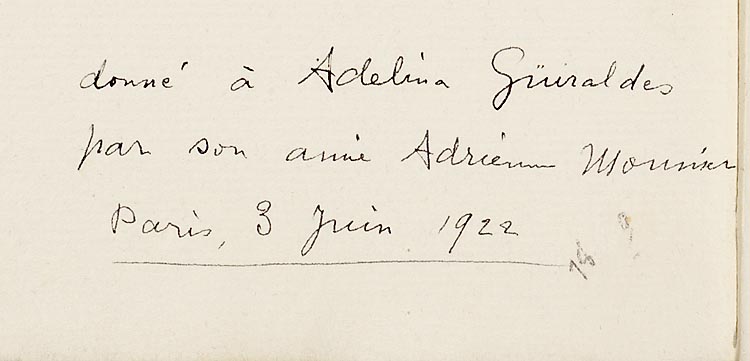 donné à Adelina Güiraldes
par son amie Adrienne Monnier
Paris, 3 Juin 1922